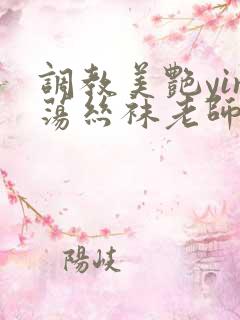 調教美艷yin
蕩絲袜老師
陽岐